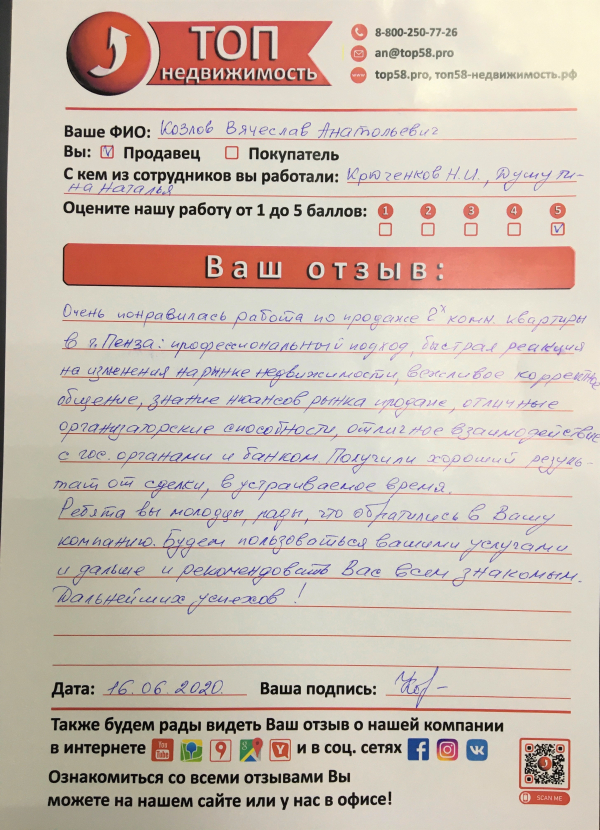 ТОП
недвижимость
8-800-250-77-26
an@top58.pro
top58.pro, топ58-недвижимость.рф
Ваше ФИО: Козлов Вячеслав Анатольевич
Вы: Продавец Покупатель
С кем из сотрудников вы работали: Крюченков Н.И., Душути-
на Наталья
Оцените нашу работу от 1 до 5 баллов: 1 2 3 4 5
Ваш отзыв:
Очень понравилась работа по продаже 2х комн. квартиры
в г. Пенза: профессиональный подход, быстрая реакция
на изменения на рынке недвижимости, вежливое корректное
общение, знание нюансов рынка продаж, отличные
организаторские способности, отличное взаимодействие
с гос. органами и банком. Получили хороший резуль-
тат от сделки, в устраиваемое время.
Ребята вы молодцы, рады, что обратились в Вашу
компанию. Будем пользоваться вашими услугами
и дальше и рекомендовать Вас всем знакомым.
Дальнейших успехов!
Дата: 16.06.2020 Ваша подпись:
Также будем рады видеть Ваш отзыв о нашей компании
в интернете You Tube 9 g Y и в соц. сетях f
Ознакомиться со всеми отзывами Вы
можете на нашем сайте или у нас в офисе!
SCAN ME